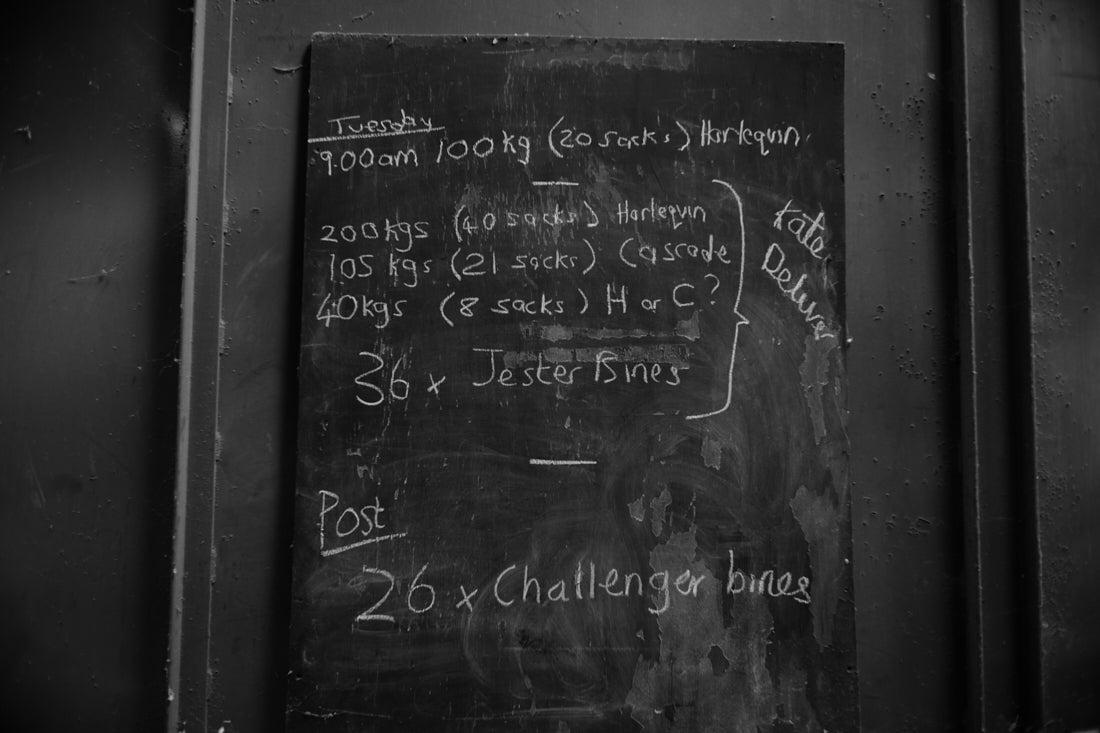 Tuesday
9.00am 100kg (20 sacks) Harlequin
200kgs (40 sacks) Harlequin
105 kgs (21 sacks) Cascade
40kgs (8 sacks) H or C?
36 x Jester Bines
Kate
Deliver
Post
26 x Challenger bines